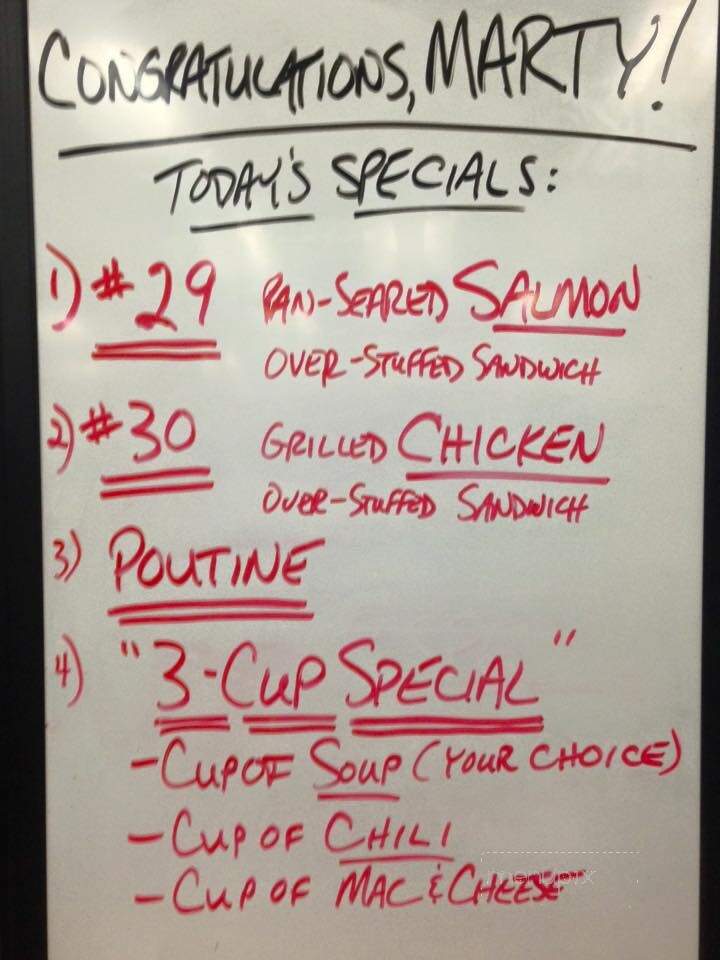 CONGRATULATIONS, MARTY!
TODAY'S SPECIALS:
1) #29 PAN-SEARED SALMON
OVER-STUFFED SANDWICH
2) #30 GRILLED CHICKEN
OVER-STUFFED SANDWICH
3) POUTINE
4) "3-CUP SPECIAL"
- CUP OF SOUP (YOUR CHOICE)
- CUP OF CHILI
- CUP OF MAC & CHEESE